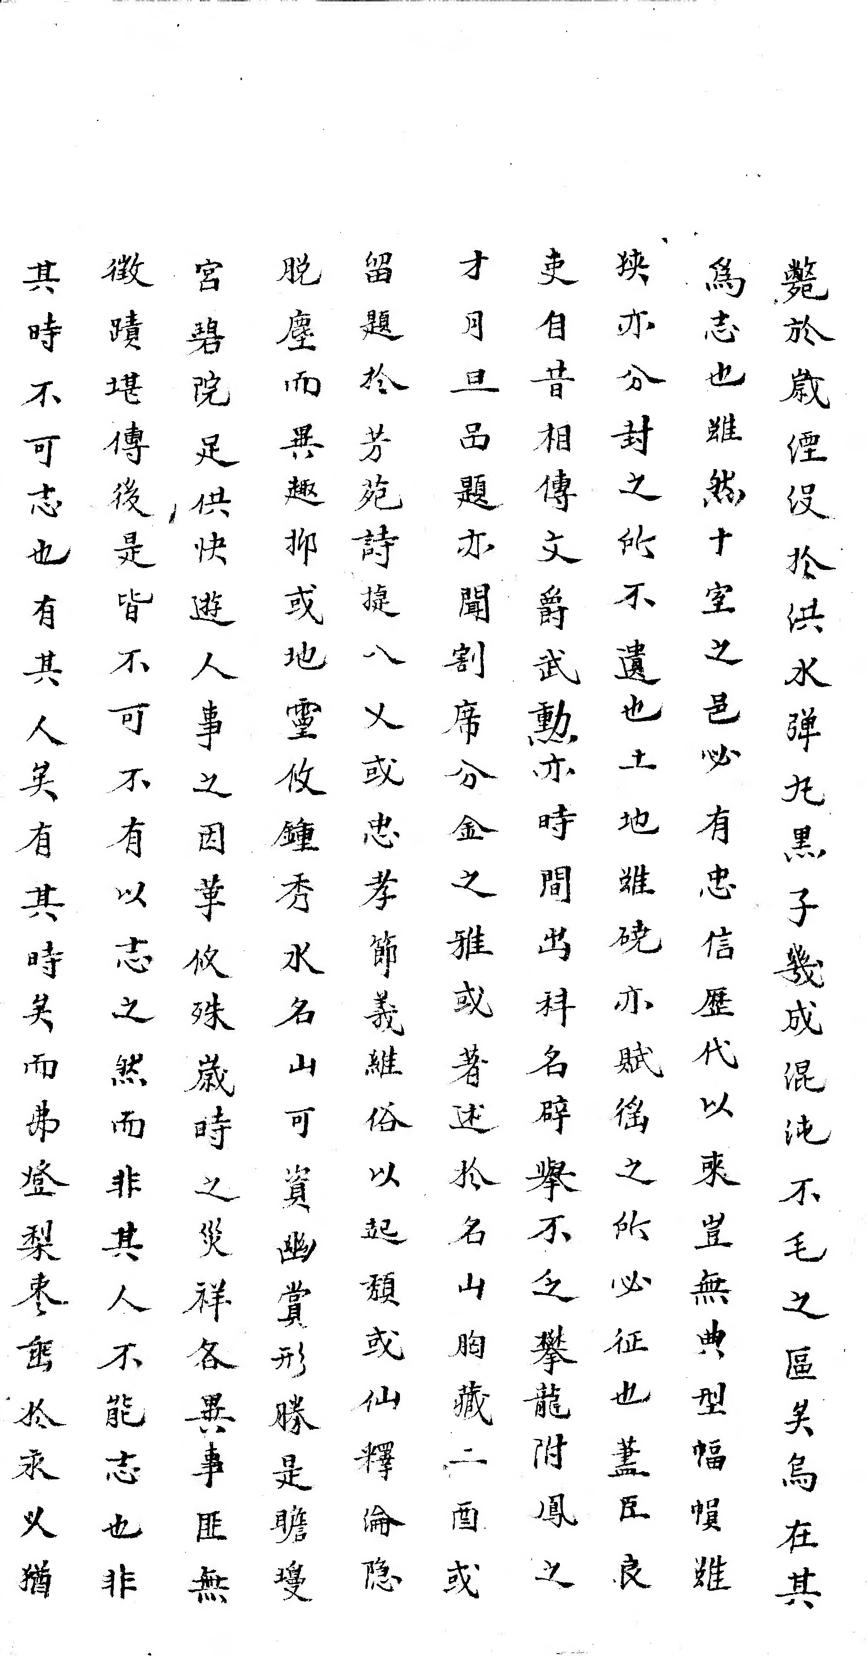 斃於歲湮没於洪水弹丸黒子幾成混沌不毛之區矣烏在其
爲志也雖然十室之邑必有忠信歷代以来豈無典型幅幀雖
狹亦分封之所不遺也土地雖磽亦賦徭之所必征也蓋臣良
吏自昔相傳文爵武勳亦時間出科名辟舉不乏攀龍附鳳之
才月旦品題亦聞割席分金之雅或著述於名山胸藏二酉或
留題於芳苑詩捷八乂或忠孝節義維俗以起頹或仙釋淪隐
脱塵而異趣抑或地靈攸鍾秀水名山可資幽賞形勝是瞻瓊
宮碧院足供快遊人事之因革攸殊歲時之災祥各異事匪無
徵蹟堪傳後是皆不可不有以志之然而非其人不能志也非
其時不可志也有其人矣有其時矣而弗登梨棗垂於永以猶